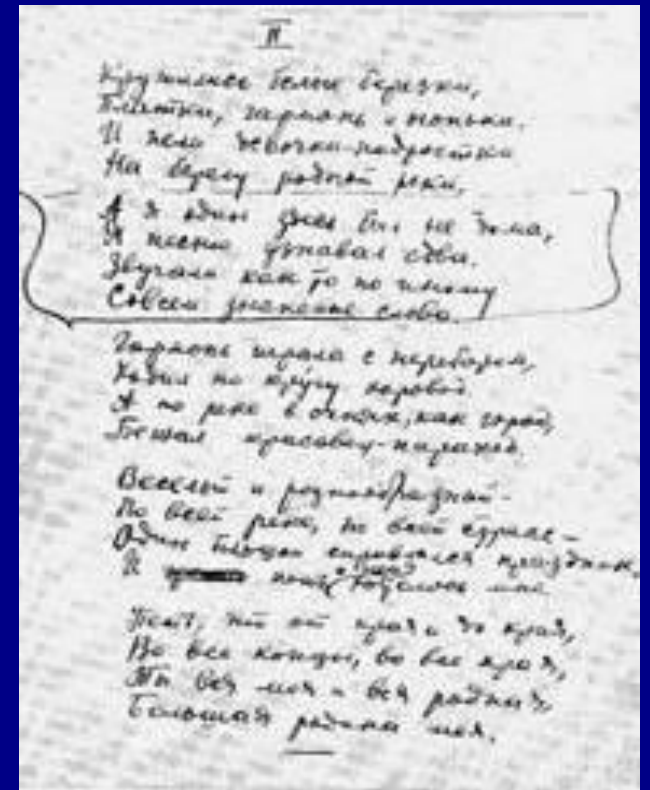 II
Кружились белые березки,
Платки, гармонь и огоньки.
И пели девочки-подростки
На берегу родной реки.
А я один здесь был не дома,
Я песню узнавал едва.
Звучали как-то по иному
Совсем знакомые слова.
Гармонь играла с перебором,
Ходил по кругу хоровод.
А по реке в огнях, как город,
Бежал красавец-пароход.
Веселый и разнообразный -
По всей реке, по всей стране -
Один большой справлялся праздник,
И петь хотелось мне
Петь, что от края и до края,
Во все концы, во все края,
Ты вся моя и вся родная,
Большая родина моя.